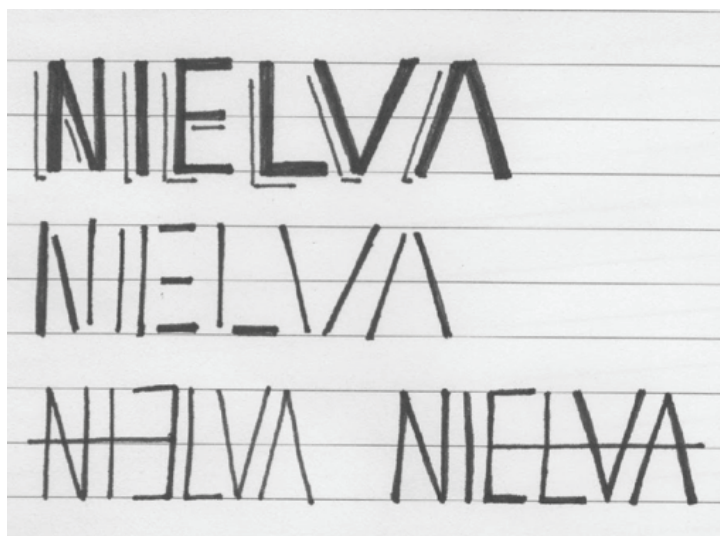 NIELVA
NIELVA
NIELVA NIELVA